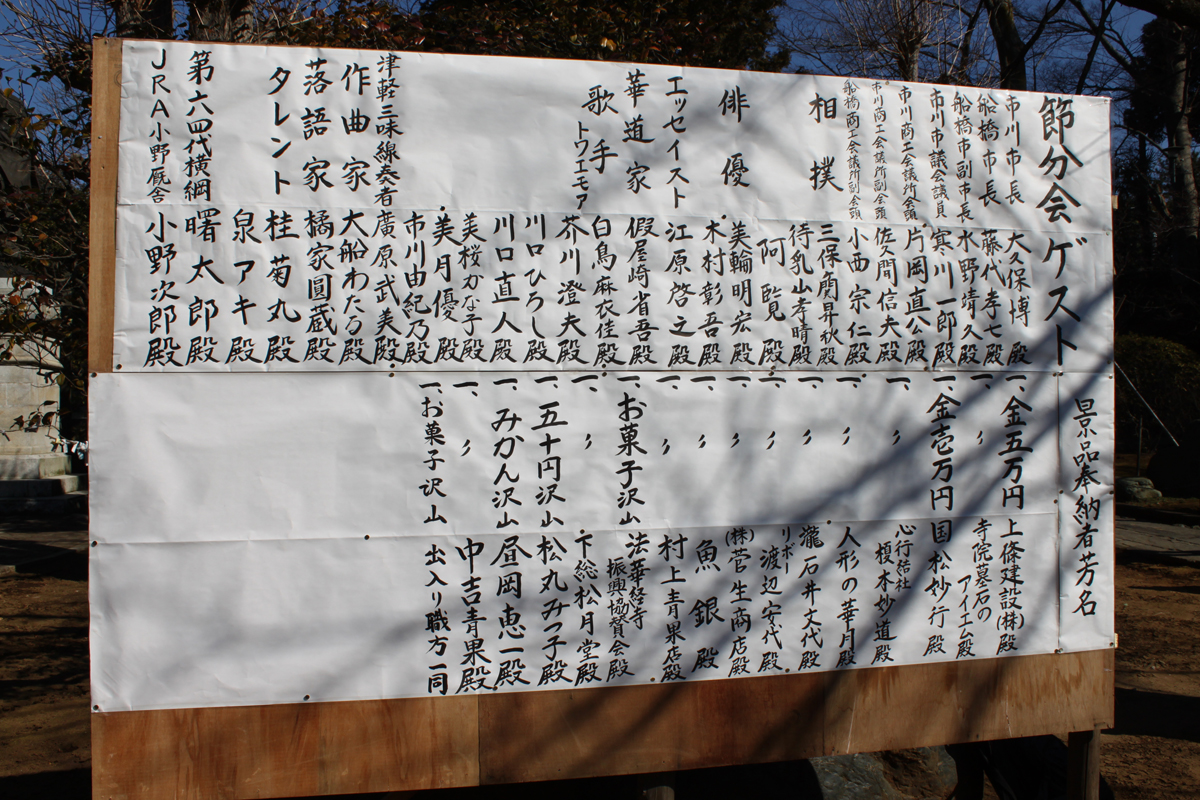 節分会ゲスト
市川市長 大久保博殿
船橋市長 藤代孝七殿
船橋市副市長 水野靖久殿
市川市議会議員 寒川一郎殿
市川商工会議所会頭 片岡直公殿
市川商工会議所副会頭 佐々間信夫殿
船橋商工会議所副会頭 小西宗仁殿
相撲 三保ヶ関昇秋殿
待乳山孝晴殿
阿覧殿
俳優 美輪明宏殿
木村彰吾殿
エッセイスト 江原啓之殿
華道家 假屋崎省吾殿
歌手 トワエモア 白鳥麻衣佳殿
芥川澄夫殿
川口ひろし殿
川口直人殿
美桜かな子殿
美月優殿
市川由紀乃殿
津軽三味線奏者 廣原武美殿
作曲家 大船わたる殿
落語家 橘家圓蔵殿
タレント 桂菊丸殿
泉アキ殿
第六四代横綱 曙太郎殿
JRA小野厩舎 小野次郎殿
景品奉納者芳名
一、金五万円 上條建設(株)殿
一、〃 寺院墓石のアイエム殿
一、金壱万円 国松妙行殿
一、〃 心行結社 榎本妙道殿
一、〃 人形の華月殿
一、〃 瀧石井丈代殿
一、〃 リボー 渡辺安代殿
一、〃 (株)菅生商店殿
一、〃 魚銀殿
一、〃 村上青果店殿
一、お菓子沢山 法華経寺振興協賛会殿
一、〃 下総松月堂殿
一、五十円沢山 松丸みつ子殿
一、みかん沢山 昼岡恵一殿
一、〃 中吉青果殿
一、お菓子沢山 出入り職方一同